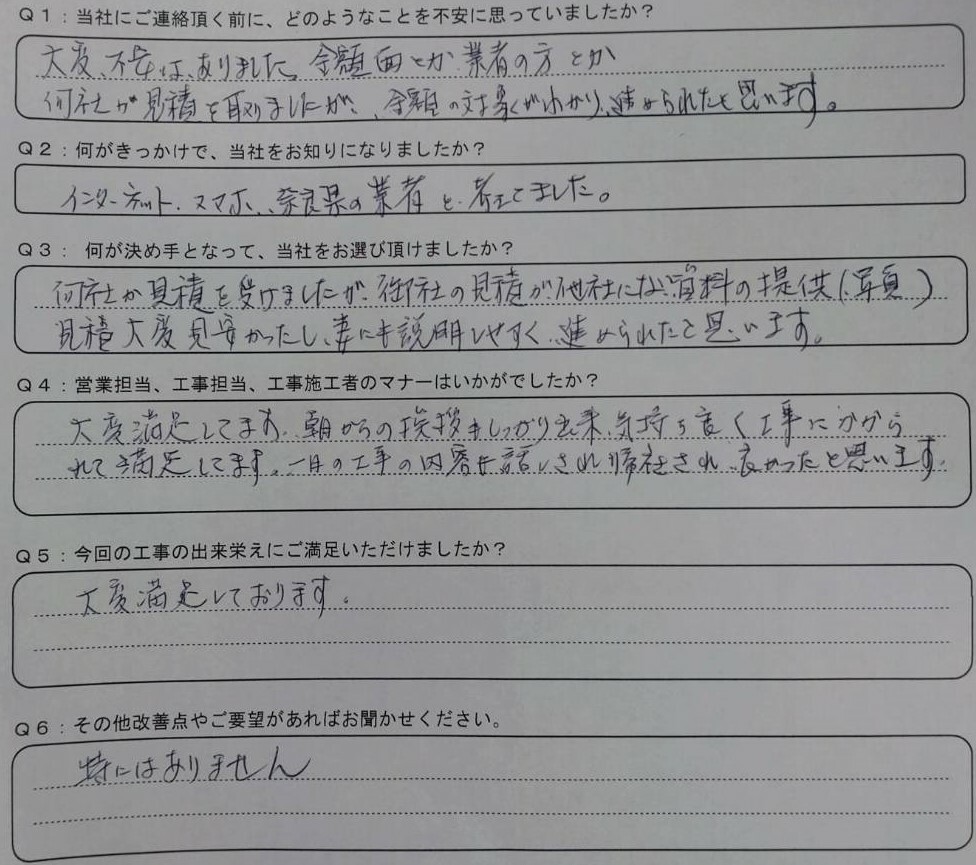 Q1：当社にご連絡頂く前に、どのようなことを不安に思っていましたか？
大変、不安は、ありました。金額面とか業者の方とか
何社か見積を取りましたが、金額の対象がわかり、進められたと思います。
Q2：何がきっかけで、当社をお知りになりましたか？
インターネット、スマホ、奈良県の業者と考えてました。
Q3： 何が決め手となって、当社をお選び頂けましたか？
何社か見積を受けましたが、御社の見積が他社にない資料の提供（写真）
見積大変見安かったし、妻にも説明しやすく、進められたと思います。
Q4：営業担当、工事担当、工事施工者のマナーはいかがでしたか？
大変満足してます。朝からの挨拶もしっかり出来、気持ち良く工事にかから
れて満足してます。一日の工事の内容も話しされ帰社され、良かったと思います。
Q5：今回の工事の出来栄えにご満足いただけましたか？
大変満足しております。
Q6：その他改善点やご要望があればお聞かせください。
特にはありません